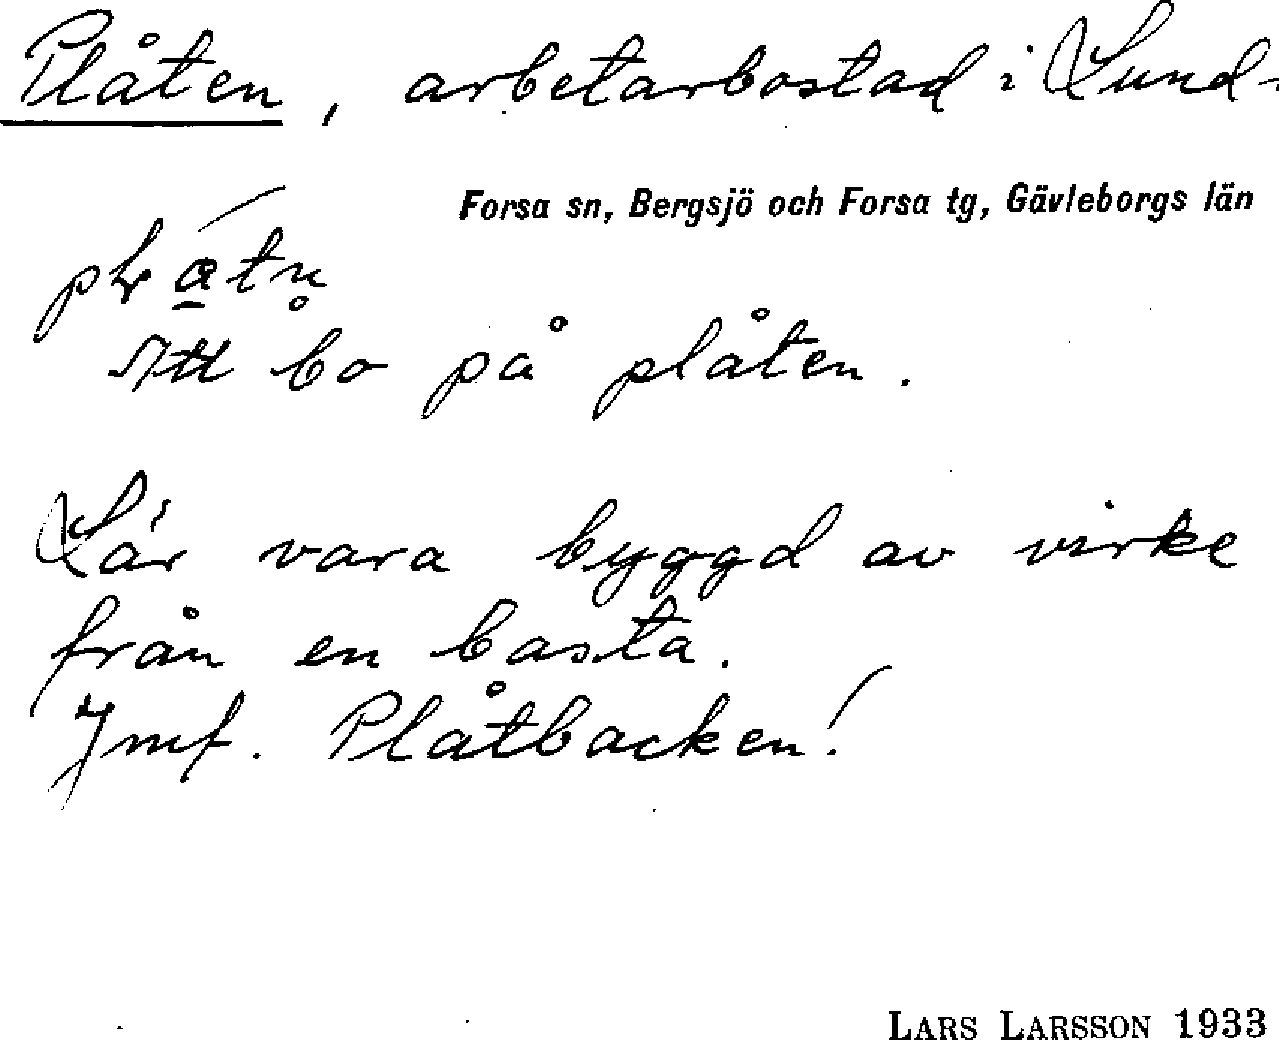 Plåten, arbetarbostad i Lund-
Forsa sn, Bergsjö och Forsa tg, Gävleborgs län
Att bo på plåten.
Lär vara byggd av virke
från en basta.
Jmf. Plåtbacken!
LARS LARSSON 1933